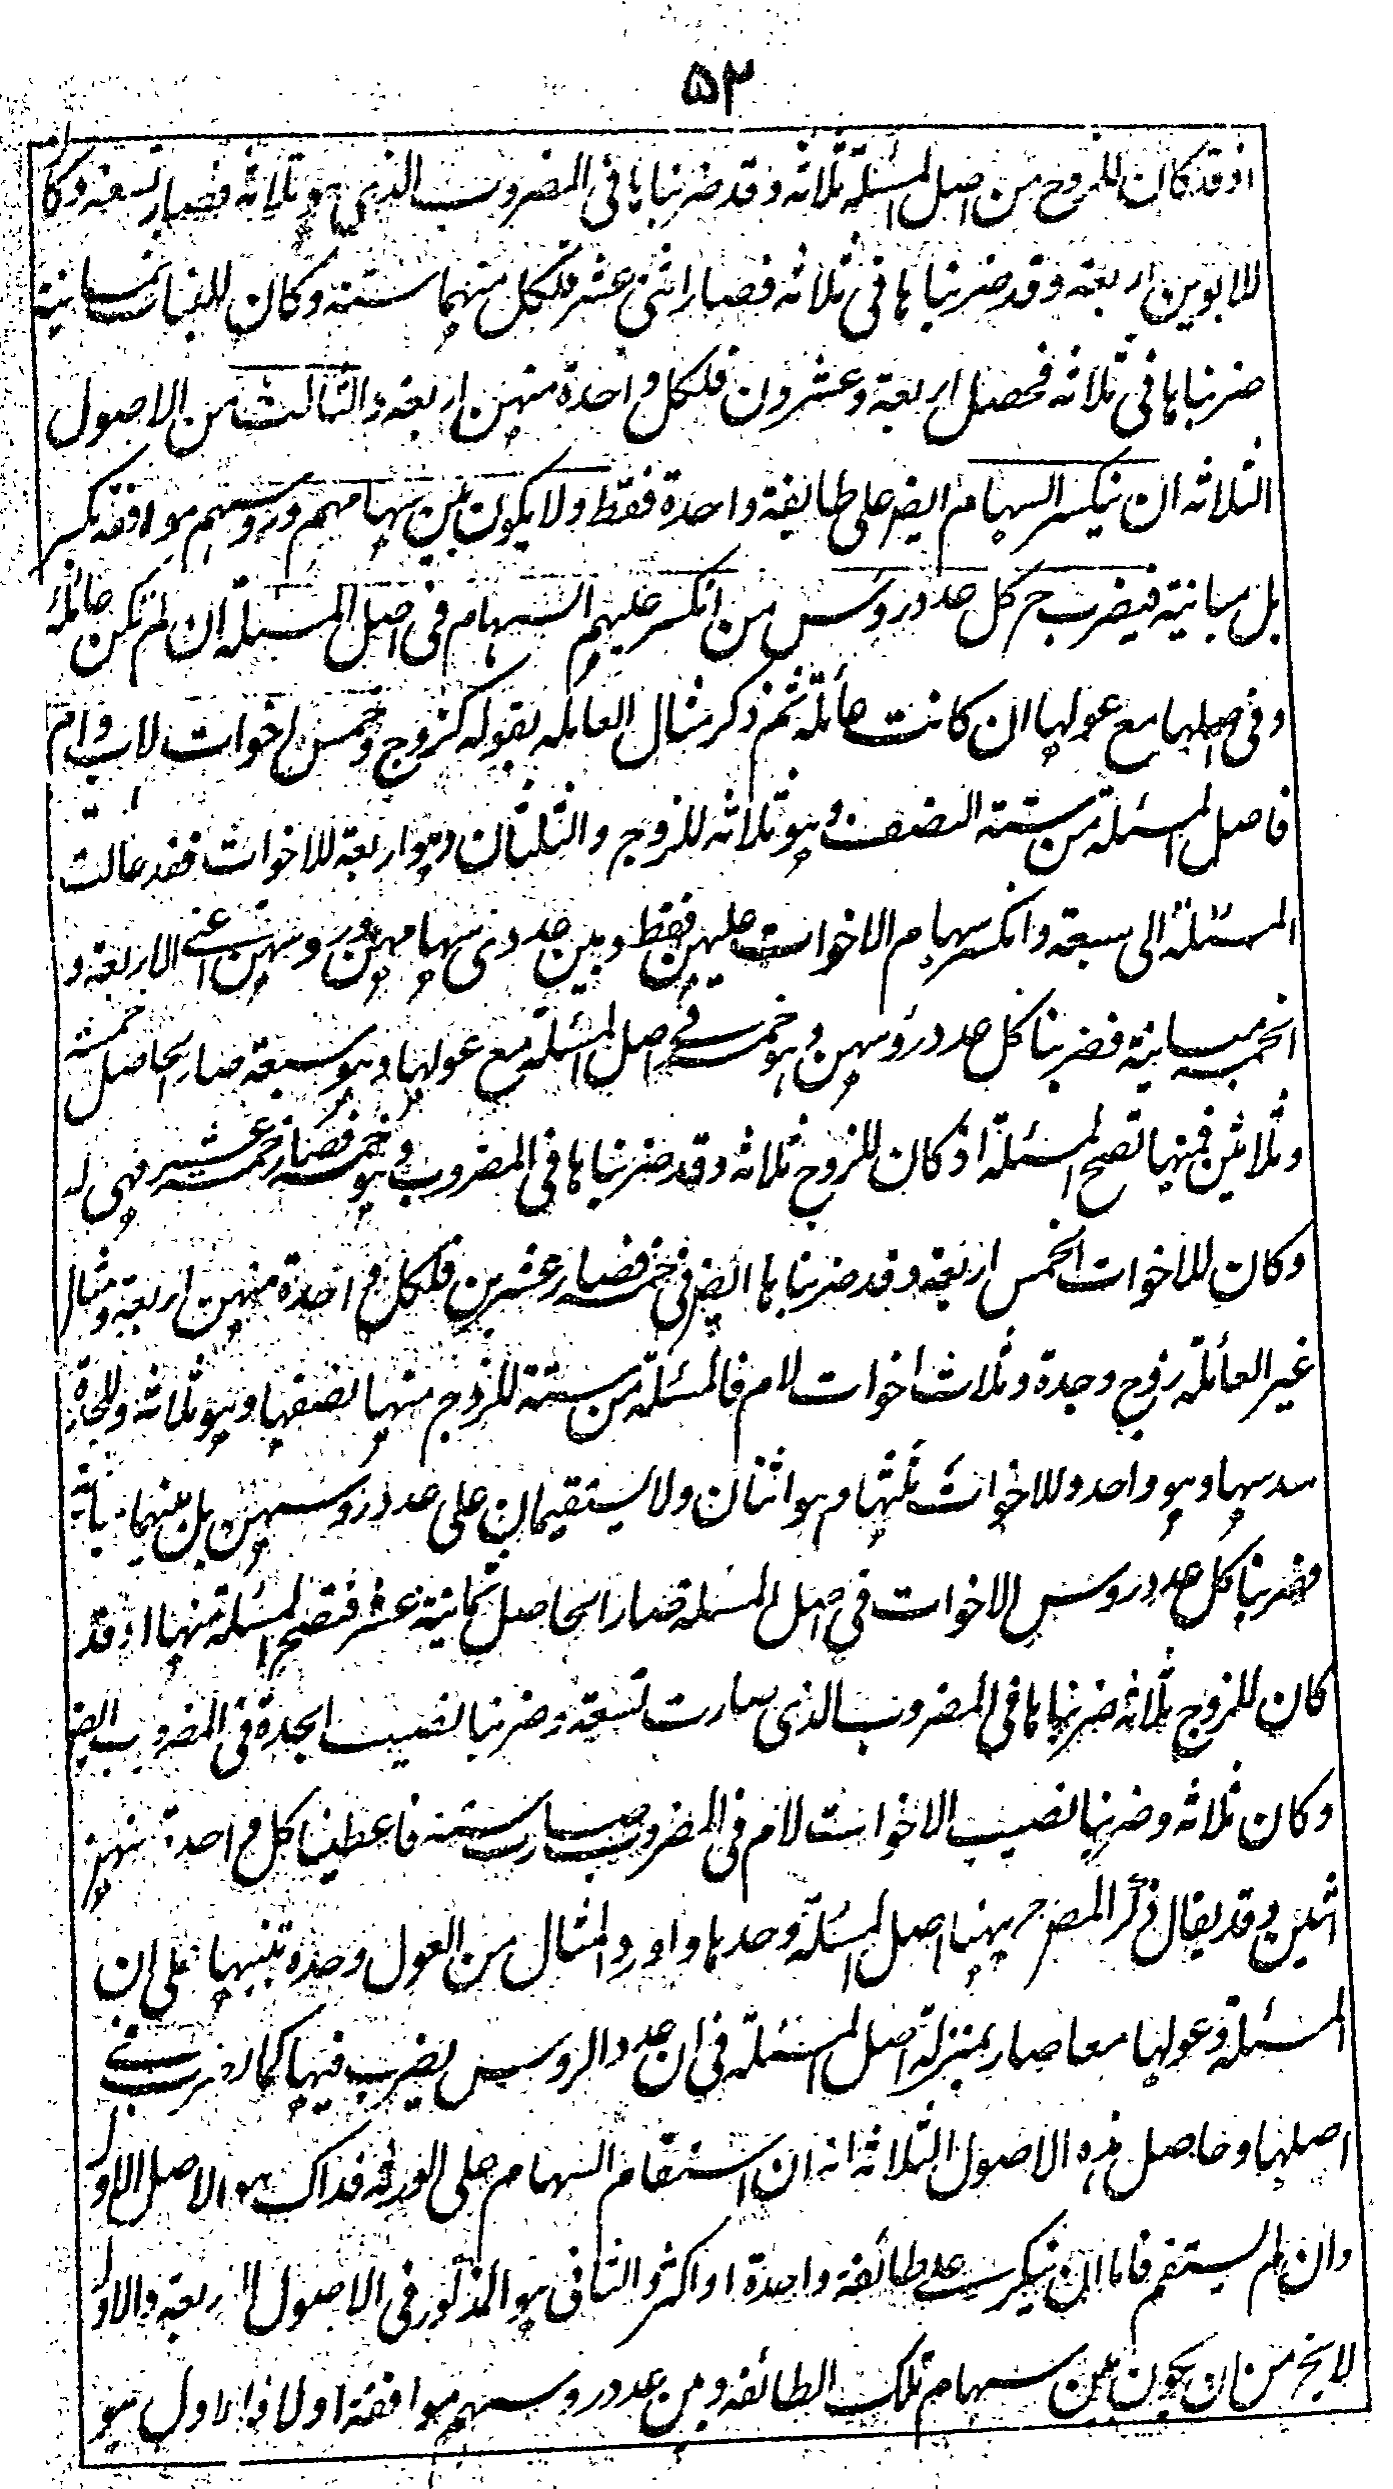 ۵۳
اذ قد كان للزوج من اصل المسئلة ثلاثه وقد ضربناها فى المضروب الذى هو ثلاثه فصار تسعة وكا
للابوين اربعة وقد ضربناها فى ثلاثه فصار اثنى عشر فلكل منهما ستة وكان للبنات ثمانية
ضربناها فى ثلاثه فحصل اربعة وعشرون فلكل واحدة منهن اربعة والثالث من الاصول
الثلاثه ان ينكسر السهام ايض على طايفة واحدة فقط ولا يكون بين سهامهم وروسهم موافقة بكسر
بل مباينة فيضرب ح كل عدد روس من انكسر عليهم السهام فى اصل المسئلة ان لم تكن عائلة
وفى اصلها مع عولها ان كانت عائلة ثم ذكر مثال العائله بقوله كزوج وخمس اخوات لاب وام
فاصل المسئلة من ستة النصف وهو ثلاثه للزوج والثلثان وهو اربعة للاخوات فقد عالت
المسئلة الى سبعة وانكسر سهام الاخوات عليهن فقط وبين عددى سهامهن وروسهن اعنى الاربعة و
الخمسة مباينة فضربنا كل عدد رؤسهن وهو خمسة فى اصل المسئلة مع عولها وهو سبعة صار الحاصل خمسة
وثلاثين فمنها تصح المسئلة اذ كان للزوج ثلاثه وقد ضربناها فى المضروب وهو خمسة فصار خمسة عشر فهى له
وكان للاخوات الخمس اربعة وقد ضربناها ايض فى خمسة فصار عشرين فلكل واحدة منهن اربعة ومثال
غير العائلة زوج وجدة وثلاث اخوات لام فالمسئلة من ستة للزوج منها نصفها وهو ثلاثه وللجدة
سدسها وهو واحد وللاخوات ثلثها وهو اثنان ولا يستقيمان على عدد روسهن بل بينهما مباينة
فضربنا كل عدد روس الاخوات فى اصل المسئلة فصار الحاصل ثمانية عشر فتصح المسئلة منها اذ قد
كان للزوج ثلاثه ضربناها فى المضروب الذى صارت تسعة وضربنا نصيب الجدة فى المضروب ايض
وكان ثلاثه وضربنا نصيب الاخوات لام فى المضروب صارت ستة فاعطينا كل واحدة منهن
اثنين وقد يقال ذكر المص ح ههنا اصل المسئلة وحدها واورد المثال من العول وحده تنبيها على ان
المسئلة وعولها معا صار بمنزلة اصل المسئلة فى ان عدد الروس يضرب فيها كما يضرب فى
اصلها وحاصل هذه الاصول الثلاثه انه ان استقام السهام على الورثه فذاك هو الاصل الاول
وان لم يستقم فاما ان ينكسر على طائفة واحدة او اكثر والثانى هو المذكور فى الاصول الاربعة والاول
لا يخ من ان يكون بين سهام تلك الطائفه وبين عدد روسهم موافقة اولا فالاول هو